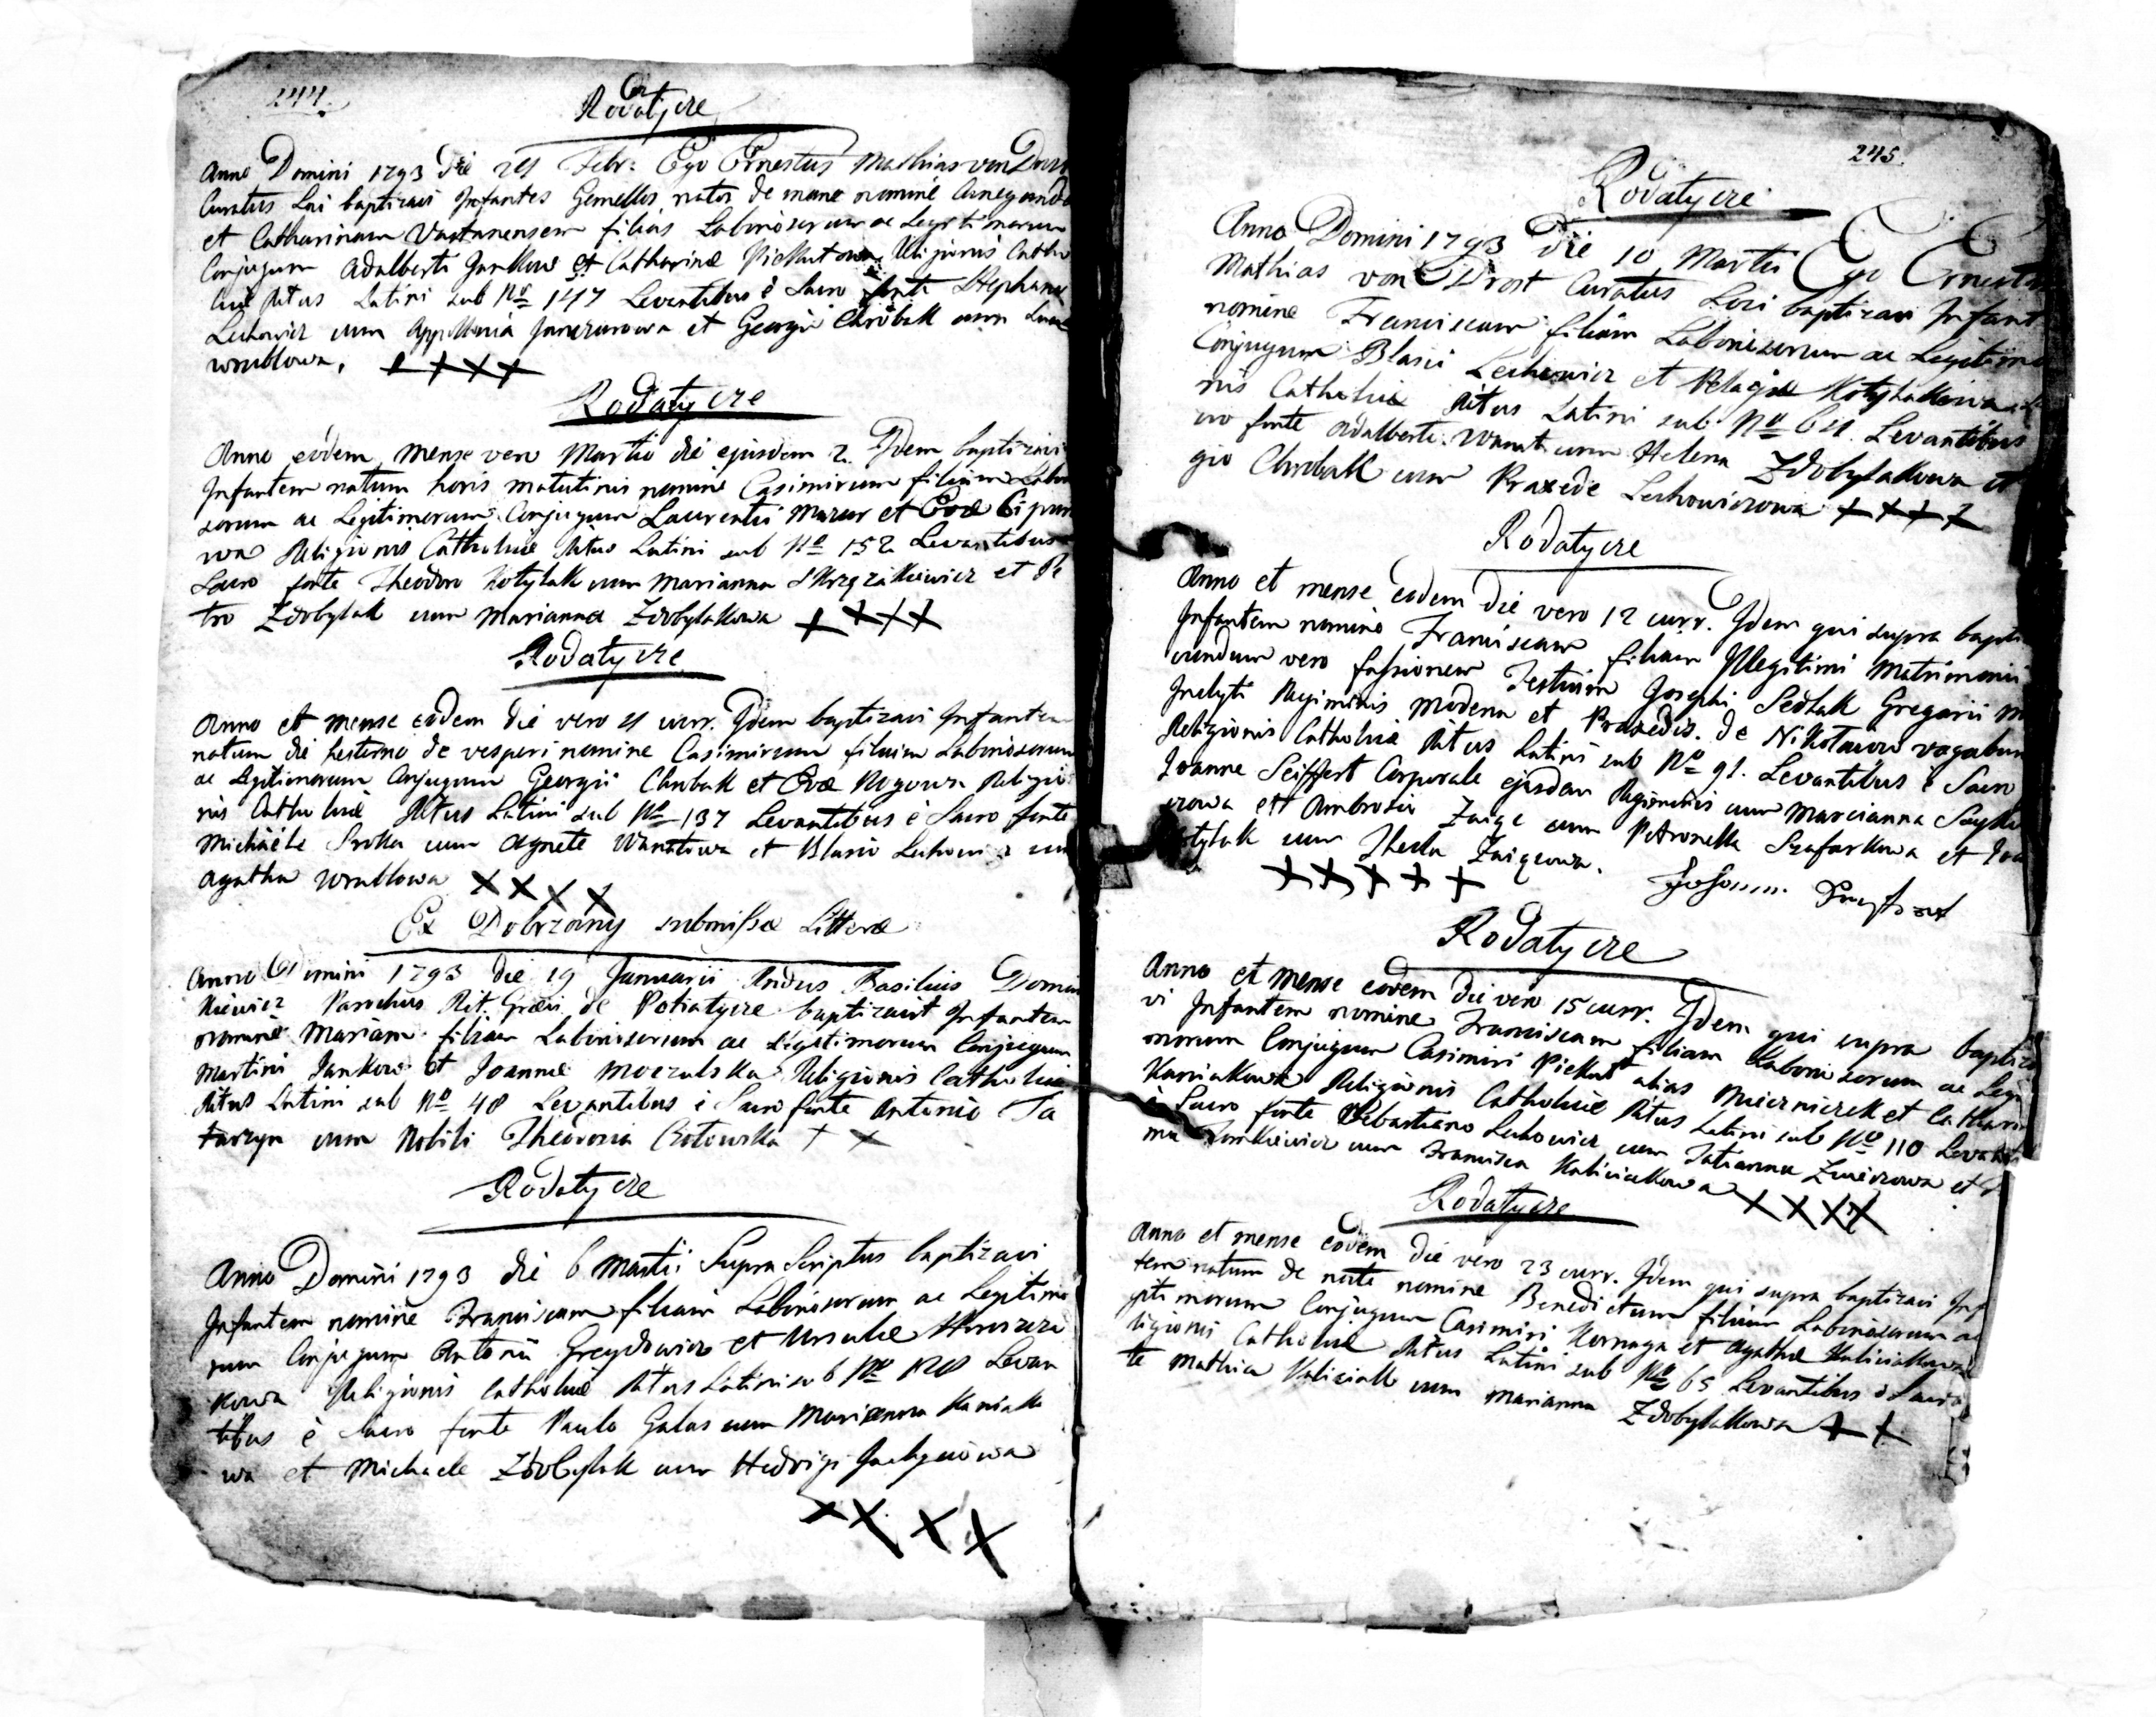 244.
Rodatycze
Anno Domini 1793 die 21 Febr: Ego Ernestus Mathias von Dro
Curatus Loci baptizavi Infantes Gemellos natos de mane nomine Cunegunde
et Catharinam filias Laboriosorum ac Legitimorum
Conjugum Adalberti Jankow et Catharinæ Piekutowa Religionis Catho
licæ Ritus Latini sub Nro 147 Levantibus è Sacro fonte Stephano
Lechowicz cum Appollonia et Georgio Chrobak cum
wrublowa. ++++
Rodatycze
Anno eodem mense vero Martio die ejusdem 2. Idem baptizavi
Infantem natum horis matutinis nomine Casimirum filium Labor
sorum ac Legitimorum Conjugum Laurentii Mazur et Evæ
wa Religionis Catholicæ Ritus Latini sub Nro 152 Levantibus
Sacro fonte Theodoro Kotylak cum Marianna et Pe
tro Zdobylak cum Marianna Zdobylakowa ++++
Rodatycze
Anno et mense eodem die vero 4 curr. Idem baptizavi Infantem
natum die hesterno de vesperi nomine Casimirum filium Laboriosorum
ac Legitimorum Conjugum Georgii Chrobak et Evæ Religio
nis Catholicæ Ritus Latini sub Nro 137 Levantibus è Sacro fonte
Michaële Sroka cum Agnete Wanatowa et Blasio Lechowicz cum
Agatha wrublowa XXXX
Ex Dobrzany submissæ Litteræ
Anno Domini 1793 die 19 Januarii Rndus Basilius Domin
kiewicz Parochus Rit. Græci de Potiatycze baptizavit Infantem
nomine Mariam filiam Laboriosorum ac Legitimorum Conjugum
Martini Jankow et Joannæ Moczulska Religionis Catholicæ
Ritus Latini sub Nro 48 Levantibus è Sacro fonte Antonio Ta
tarzyn cum Nobili Theodosia ++
Rodatycze
Anno Domini 1793 die 6 Martii Supra Scriptus baptizavi
Infantem nomine Franciscam filiam Laboriosorum ac Legitimo
rum Conjugum Antonii Greydowicz et Ursulæ
kowa Religionis Catholicæ Ritus Latini sub Nro 128 Levan
tibus è Sacro fonte Paulo Galas cum Marianna Kaniako
wa et Michaele Zdobylak cum Hedvigi
XXXX
245.
Rodatycze
Anno Domini 1793 die 10 Martii Ego Ernestus
Mathias von Drost Curatus Loci baptizavi Infant
nomine Franciscam filiam Laboriosorum ac Legitimo
Conjugum Blasii Lechowicz et Pelagiæ Kotylakowa
nis Catholicæ Ritus Latini sub Nro 64. Levantibus
cro fonte Adalberto Wanat cum Helena Zdobylakowa et
gio Chrobak cum Praxede Lechowiczowa ++++
Rodatycze
Anno et mense eodem die vero 12 curr. Idem qui supra bapti
Infantem nomine Franciscam filiam Illegitimi Matrimonii
cundum vero fassionem Testium Josephi Sedlak Gregarii M
Inclyti Regiminis Modena et Praxedis de vagabun
Religionis Catholicæ Ritus Latini sub Nro 91. Levantibus è Sacro
Joanne Seiffert Corporale ejusdem Regiminis cum Marcianna
czowa et Ambrosio cum Petronella Szafarkowa et Joa
otylak cum Thecla
XXXXX
Rodatycze
Anno et mense eodem die vero 15 curr. Idem qui supra baptiza
vi Infantem nomine Franciscam filiam Laboriosorum ac Legi
morum Conjugum Casimiri Piekut alias Mierniczek et Cathari
Kaniakowa Religionis Catholicæ Ritus Latini sub Nro 110 Levanti
è Sacro fonte Sebastiano Lechowicz cum Tatianna et
cum Francisca Kaliciakowa XXXX
Rodatycze
Anno et mense eodem die vero 23 curr. Idem qui supra baptizavi Inf
tem natum de nocte nomine Benedictum filium Laboriosorum ac
gitimorum Conjugum Casimiri Kornaga et Agathæ Kaliciakowa
ligionis Catholicæ Ritus Latini sub Nro 65 Levantibus è Sacro
te Mathia Kaliciak cum Marianna Zdobylakowa ++